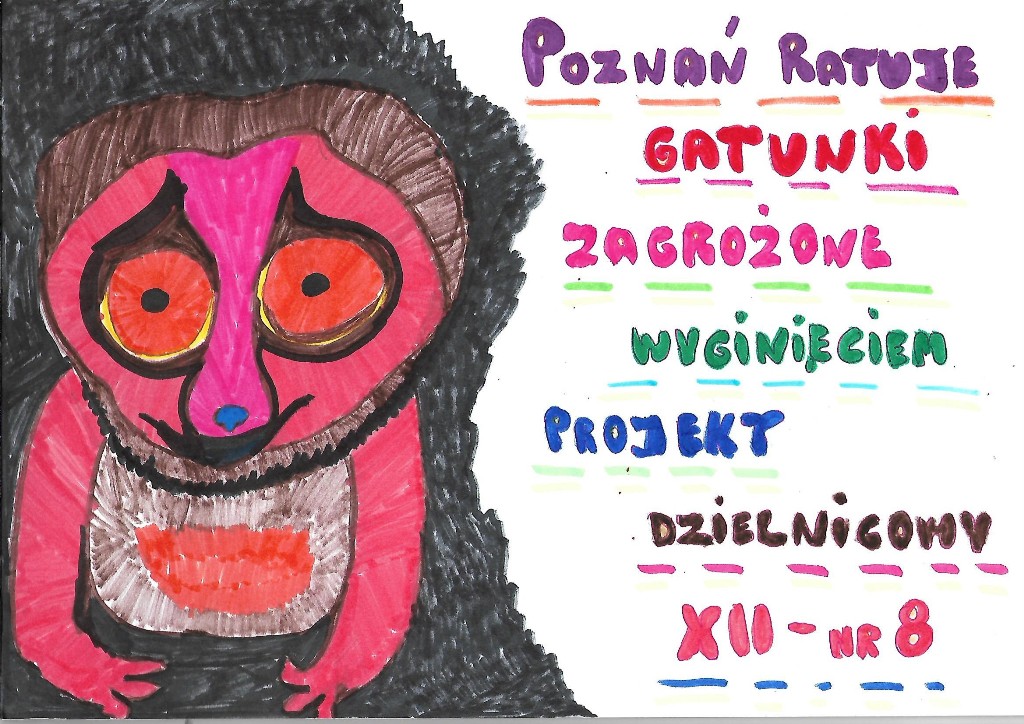 POZNAŃ RATUJE
GATUNKI
ZAGROŻONE
WYGINIĘCIEM
PROJEKT
DZIELNICOWY
XII - NR 8